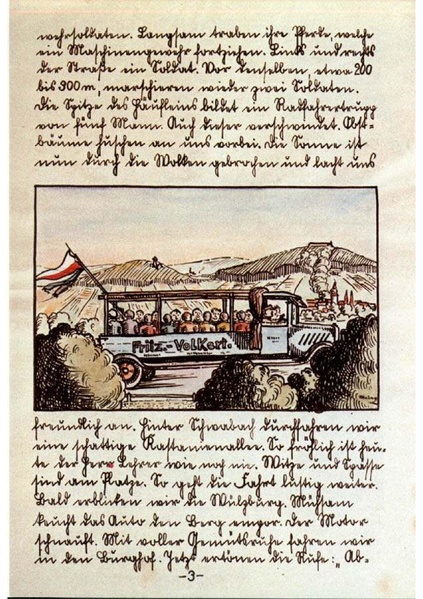 wehrsoldaten. Langsam traben ihre Pferde, welche
ein Maschinengewehr fortziehen. Links und rechts
der Straße ein Soldat. Vor denselben, etwa 200
bis 300 m, marschieren wieder zwei Soldaten.
Die Spitze des Häufleins bildet ein Radfahrertrupp
von fünf Mann. Auch dieser verschwindet. Obst-
bäume huschen an uns vorbei. Die Sonne ist
nun durch die Wolken gebrochen und lacht uns
Fritz-Volkert.
freundlich an. Hinter Schwabach durchfahren wir
eine schattige Kastanienallee. So fröhlich ist heu-
te der Herr Lehrer wie noch nie. Witze und Spässe
sind am Platze. So geht die Fahrt lustig weiter.
Bald erblicken wir die Wülzburg. Mühsam
keucht das Auto den Berg empor. Der Motor
schnauft. Mit voller Gemütsruhe fahren wir
in den Burghof. Jetzt ertönen die Rufe: „Ab-
-3-